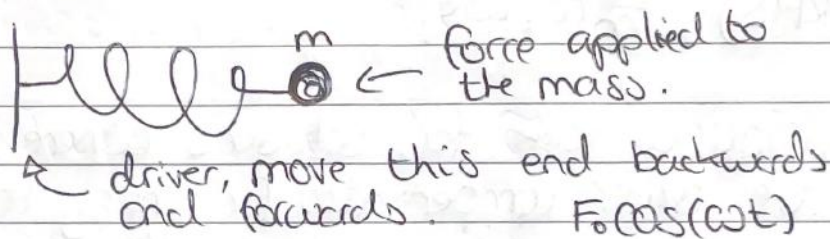 m
force applied to
the mass.
driver, move this end backwards
and forwards. F₀cos(ωt)